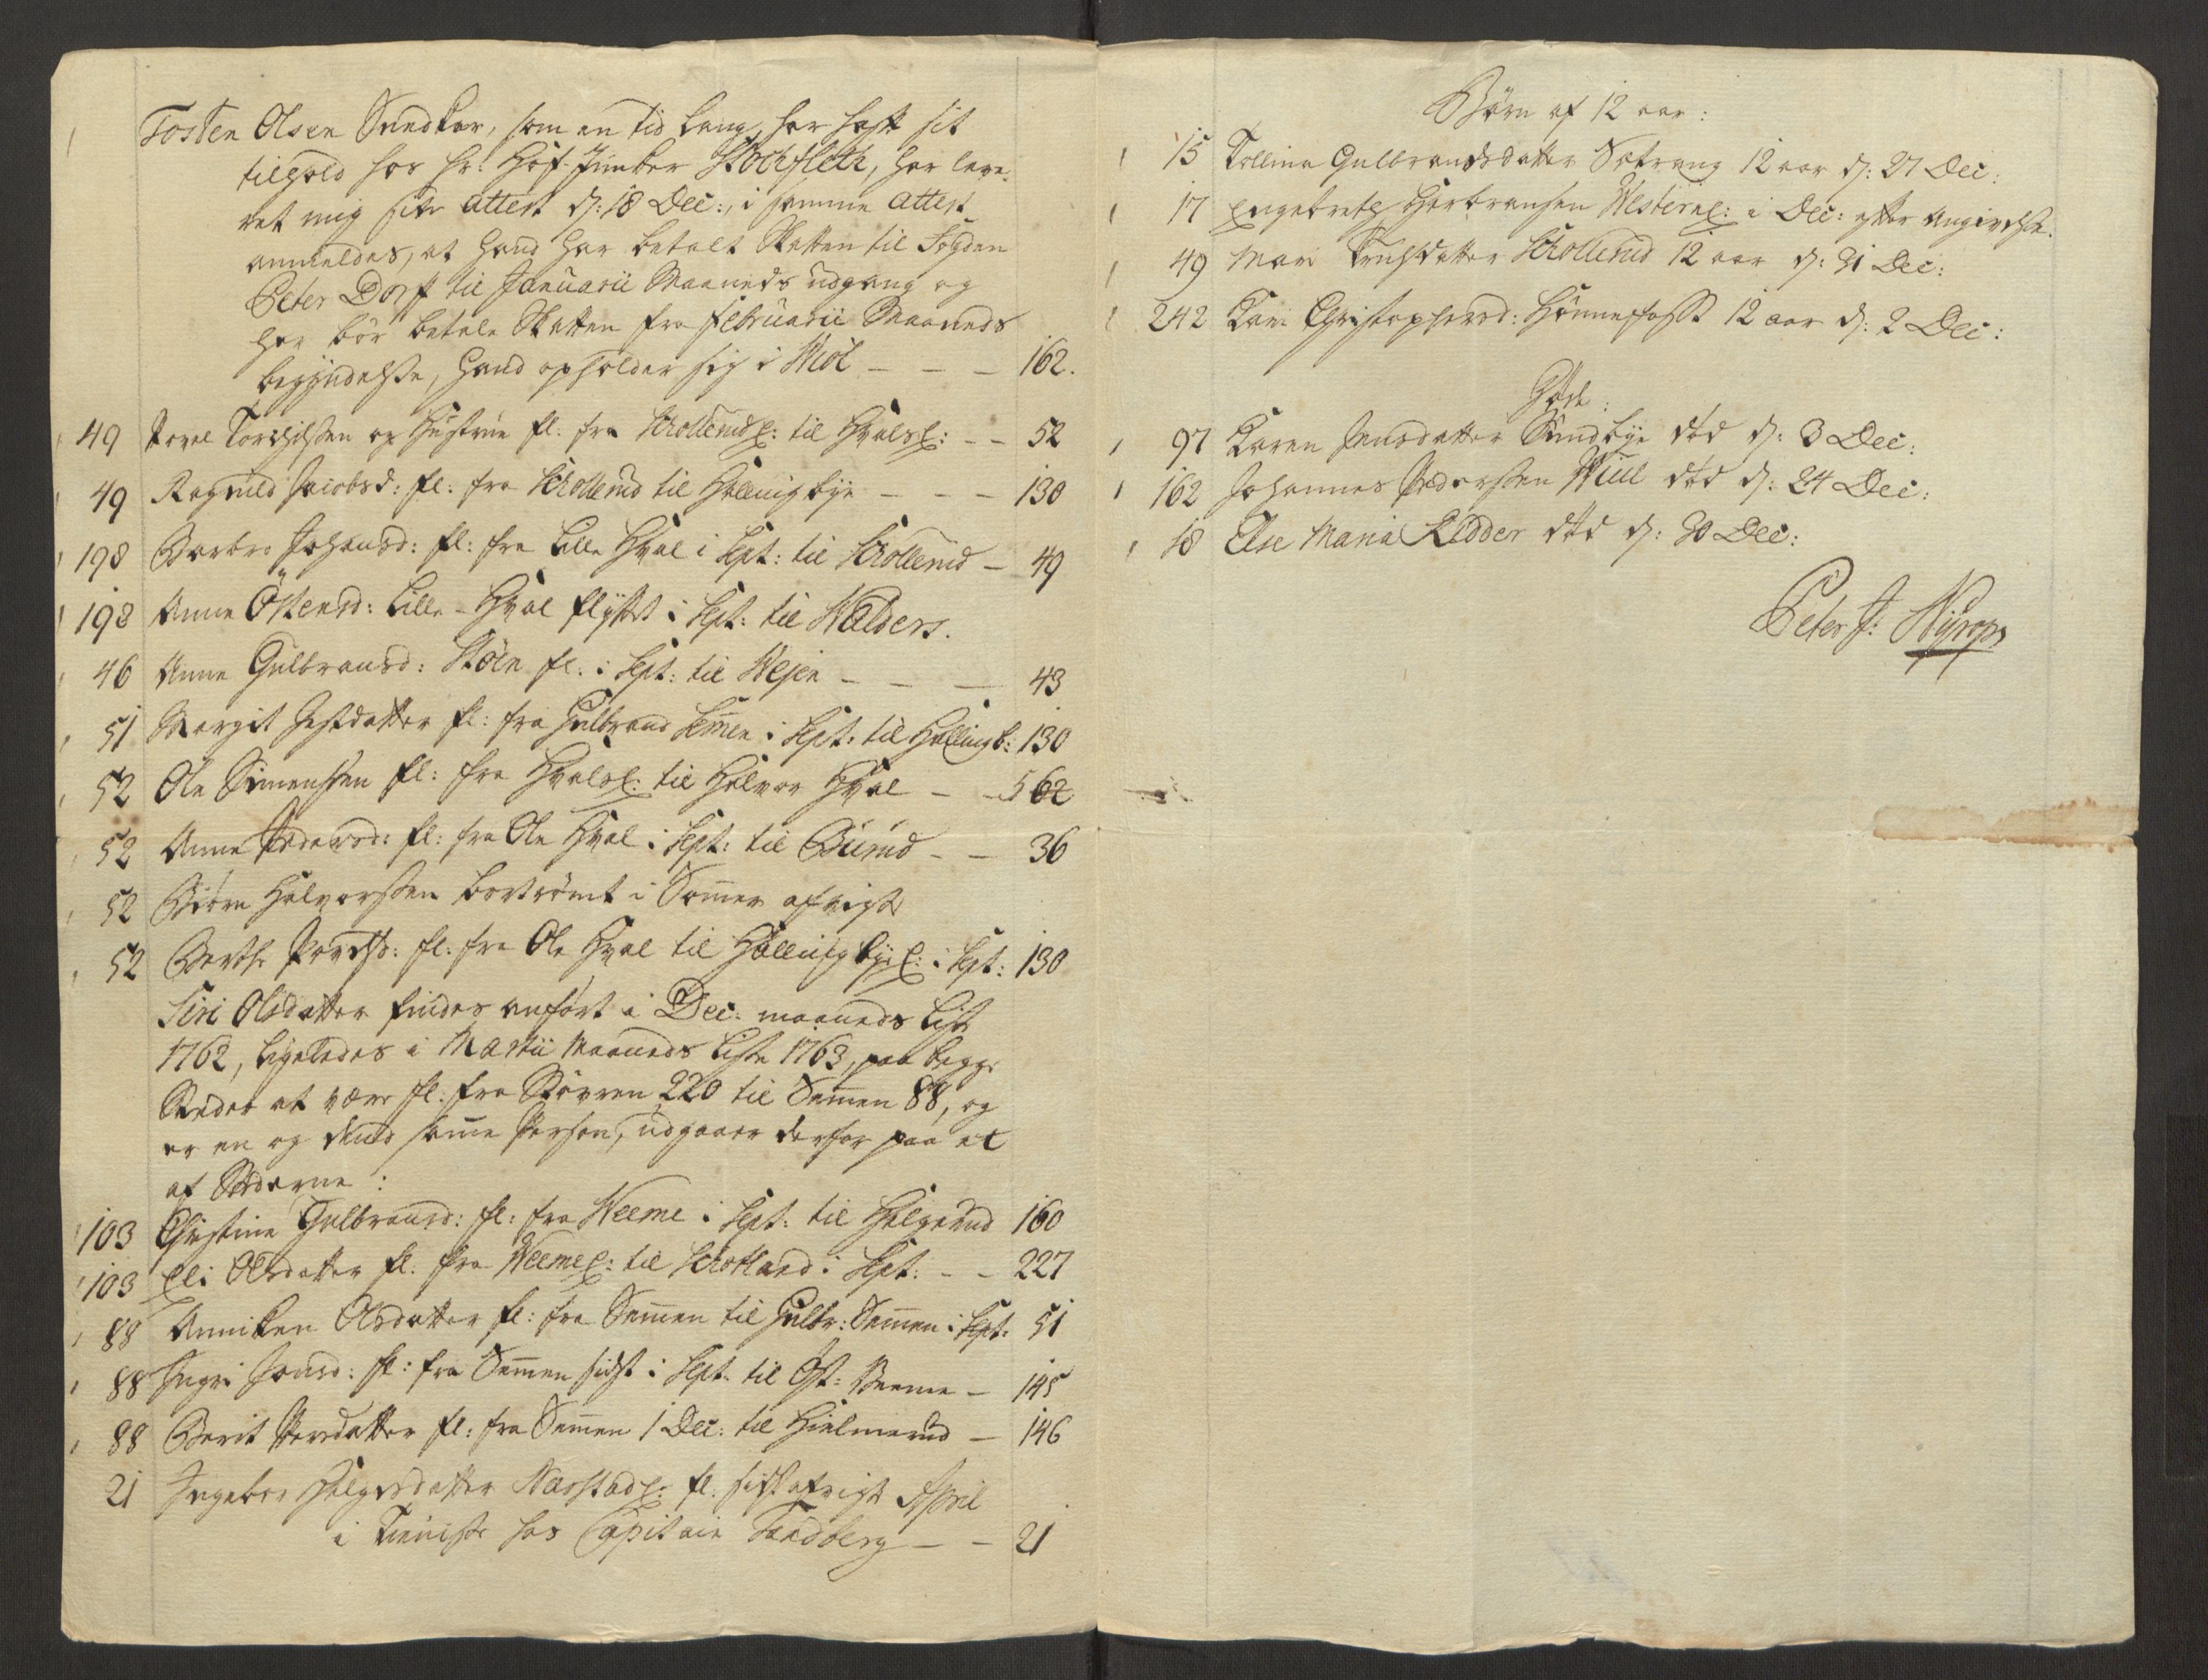 Tosten Olsen Sundker, som en tid lang har haft sit
tilhold hos hr: Hof-Junker Stochfleth, har leve-
ret mig sin attest d: 18 Dec:, i samme attest
anmeldes, at hand har betalt Skatten til Fogden
Peter Dorf til Januarii Maaneds udgang og
her bör betale Skatten fra Februarii Maaneds
begÿndelsse, hand opholder sig i Wiöl - - - 162.
49 Povel Torchilssen og Hustrue fl. fra Schollerud til Hvals - - 52
49 Ragnild Jacobsd: fl: fra Schollerud til Hallingbye - - - 130
198 Barbro Johansd: fl: fra Lille Hval i Sept: til Schollerud - 49
198 Anne Östensd: Lille-Hval flÿttet i Sept: til Walders.
46 Anne Gulbransd: Stöen fl. i Sept: til Wejen - - - 43
51 Margit datter fl: fra Gulbrand Semen i Sept: til Hallingb: 130
52 Ole Simenssen fl: fra Hvals til Halvor Hval - - 562
52 Anne Pedersd: fl: fra Ole Hval i Sept: til Büerud - - 36
52 Biörn Halvorssen bortrömt i Somer afvigt
52 Berthe fl: fra Ole Hval til Hallingbye i Sept: 130
Siri Olsdatter findes anfört i Dec: maaneds Liste
1762, ligeledes i Martii Maaneds Liste 1763, paa begge
Steder at være fl: fra Stövren 220 til Semen 88, og
er en og samme Person, udgaaer derfor paa et
af Stederne:
103 Christine Gulbransd: fl: fra Weeme i Sept: til Helgerud 160
103 Eli Olsdatter fl. fra Weeme til Schotland i Sept: - - 227
88 Anniken Olsdatter fl: fra Semen til Gulbr: Semen i Sept: 51
88 Ingri Hansd: fl: fra Semen sidst i Sept. til Öst: Weeme - 145
88 Berit Persdatter fl: fra Semen 1 Dec: til Hielmerud - 146
21 Ingebor Helgesdatter Narstad fl. sidst afvigt April
i Tieniste hos Capitain Sandberg - - 21
Börn af 12 aar:
15 Tolline Gulbrandsdatter Setrang 12 aar d: 27 Dec:
17 Engebreth Herbransen Western: i Dec: efter angivelse.
49 Mari datter Schollerud 12 aar d: 31 Dec:
242 Kari Christophersd: Hönnefosst 12 aar d: 2 Dec:
Döde:
97 Karen Jensdatter Sundbye död d: 3 Dec:
162 Johannes Pedersen Wiul död d: 24 Dec:
18 Else Maria Ridder död d: 30 Dec:
Peter J: Nÿrop